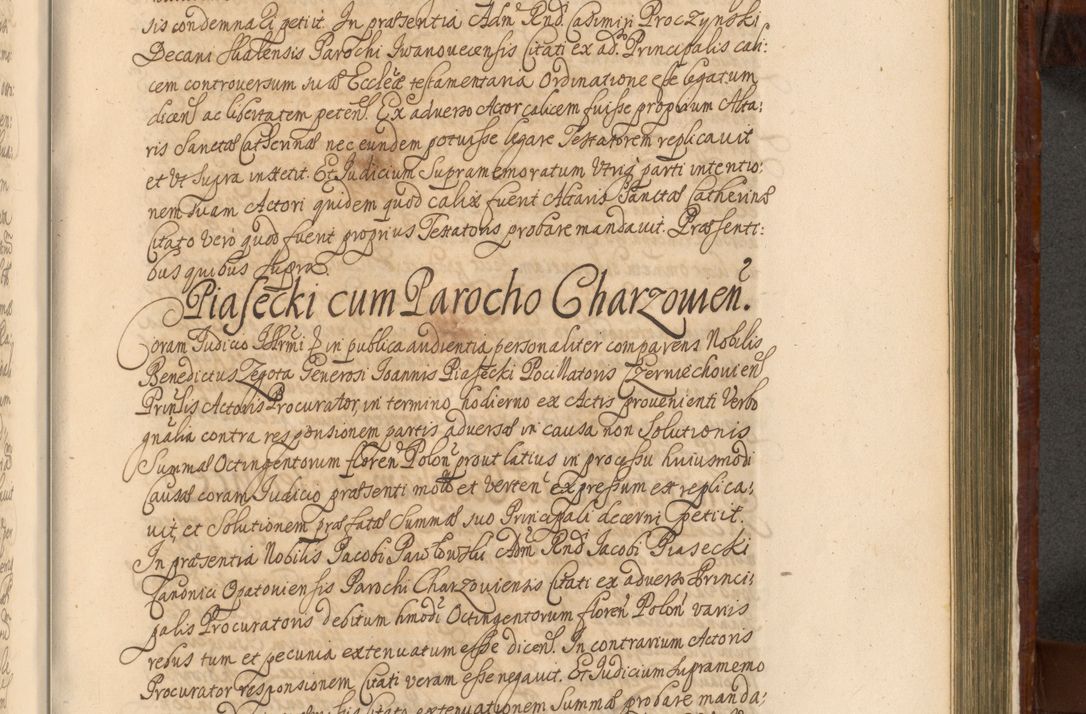 sis condemnari petiit. In præsentia Adm̃ Rnd̃. Casimiri Proczynski
Decani Skalensis Parochi Iwanovecensis Citati ex ad. Principalis cali:
cem controversum suæ Ecclæ testamentaria Ordinatione esse legatum
dicen̄. ac libertatem peten̄. Ex adverso Actor calicem fuisse proprium Alta:
ris Sanctæ Catherinæ nec eundem potuisse legare Testatorem replicavit
et Vt supra institit. Et Iudicium Supramemoratum Utriq parti intentio:
nem suam Actori quidem quòd calix fuerit Altaris Sanctæ Catherinæ
Citato verò quod fuerit proprius Testatoris probare mandavit. Præsenti:
bus quibus supra
Piasecki cum Parocho Charzovien̄.
Coram Iudicio Illrmi D in publica audientia personaliter comparens Nobilis
Benedictus Zegota Generosi Ioannis Piasecki Pocillatoris Czerniechovien̄
Prinlis Actoris Procurator, in termino hodierno ex Actis provenienti Verbo
gnãlia contra responsionem partis adversæ in causa non Solutionis
Summæ Octingentorum floren̄ Polon̄ prout latius in processu huiusmodi
Causæ coram Iudicio præsenti motæ et verten̄ expressum est replica:
vit, et Solutionem præfatæ Summæ suo Principali decerni petiit.
In præsentia Nobilis Iacobi Pawłowski Adm̃ Rnd̃ Iacobi Piasecki
Canonici Opatoviensis Parochi Charzoviensis Citati ex adverso Princi:
palis Procuratoris debitum hmodi Octingentorum floren̄ Polon̄ variis
rebus tum et pecunia extenuatum esse dicen̄. In contrarium Actoris
Procurator responsionem Citati veram esse negavit. Et Iudicium supramemo
extenuationem Summæ probare manda: